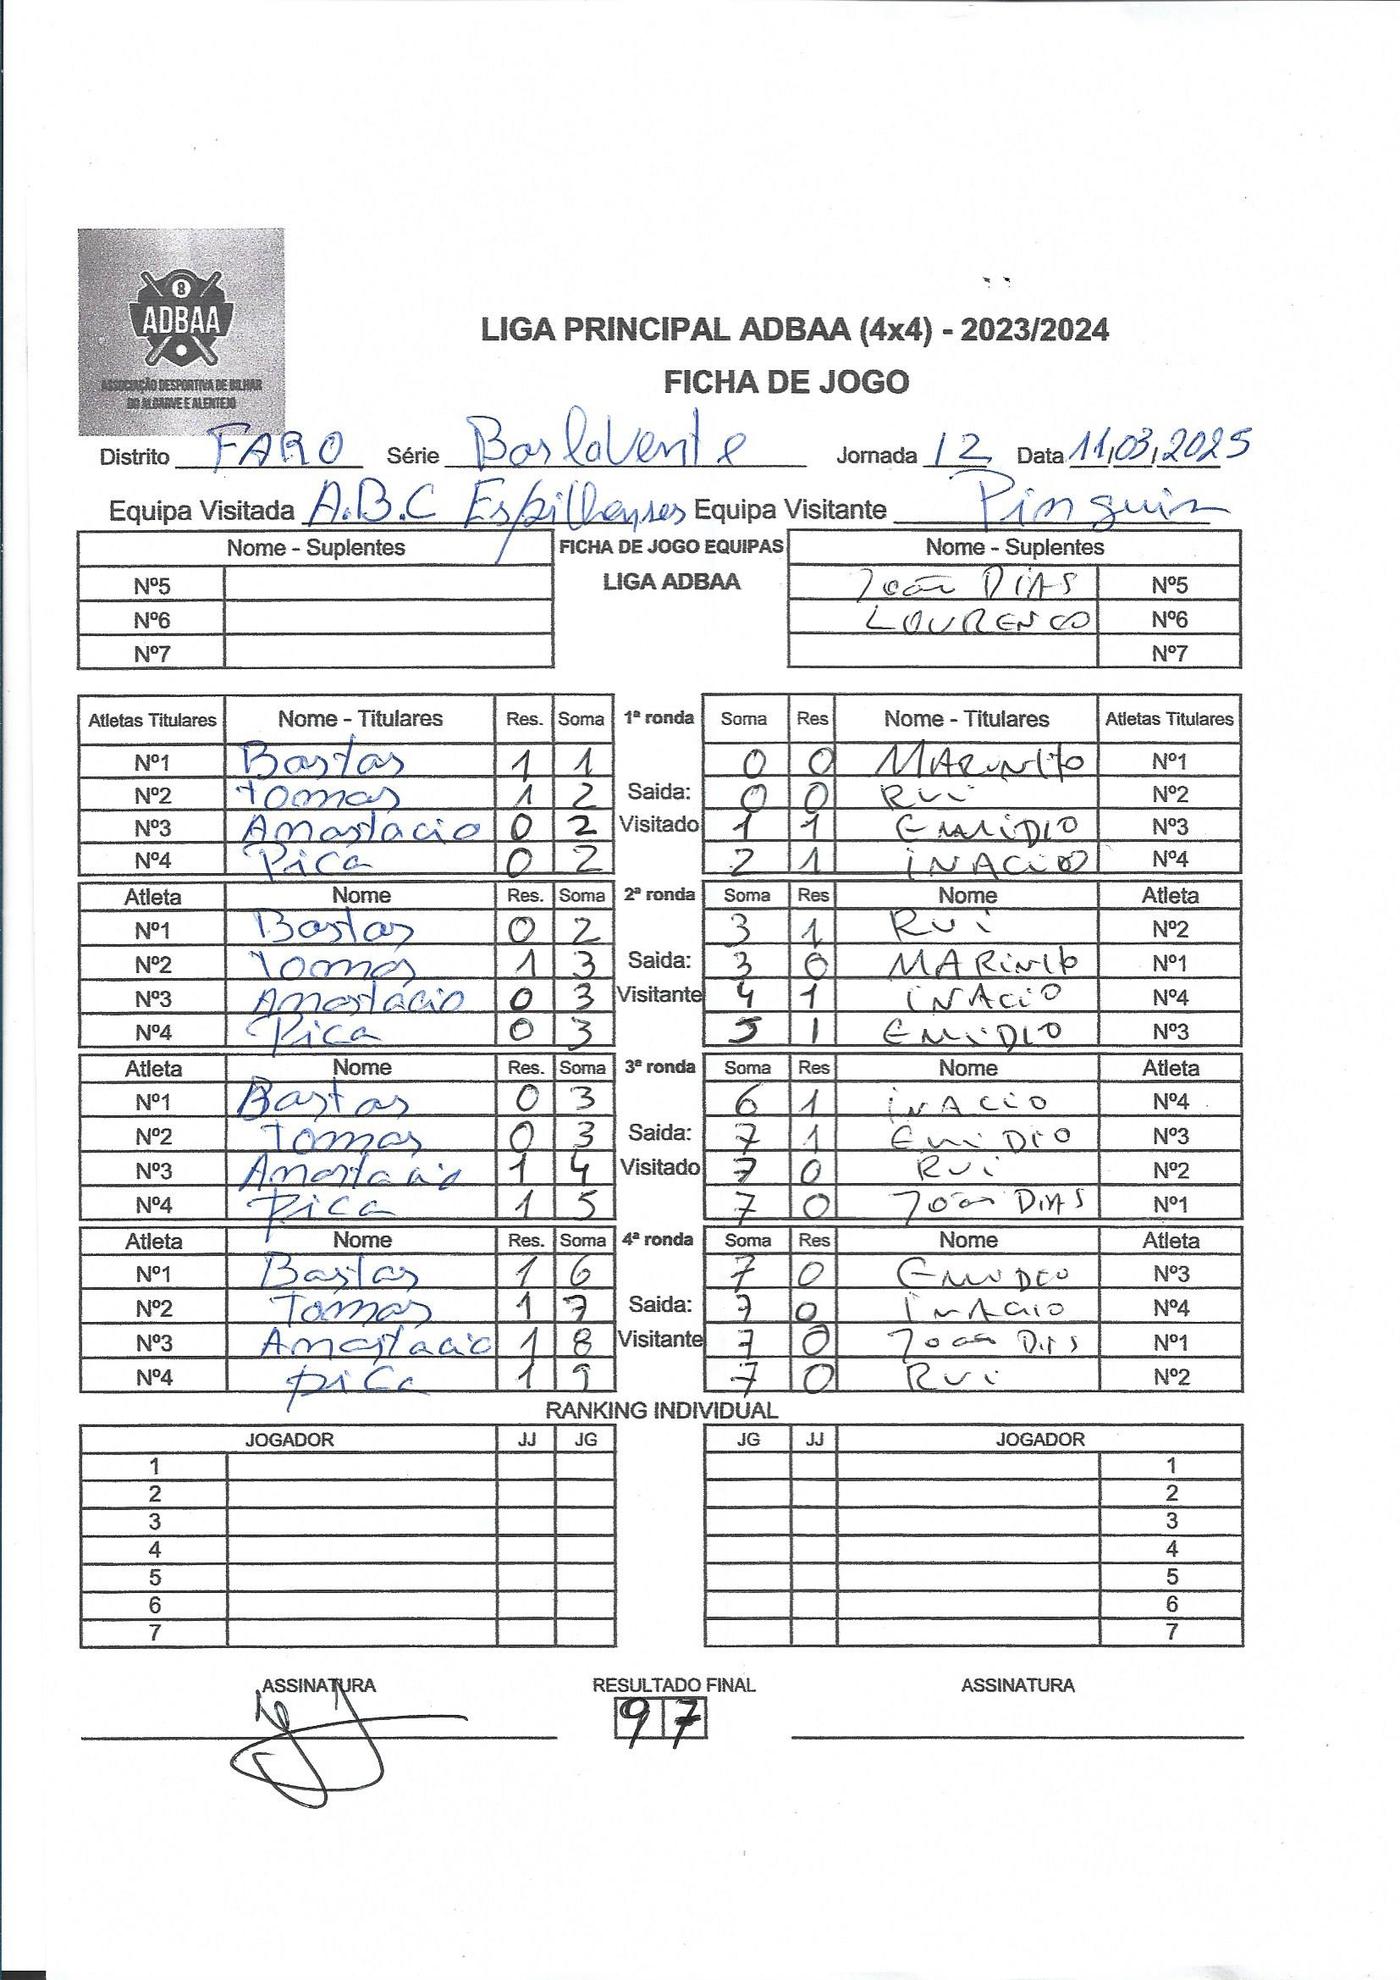 8
ADBAA
ASSOCIAÇÃO DESPORTIVA DE BILHAR
DO ALGARVE E ALENTEJO
LIGA PRINCIPAL ADBAA (4x4) - 2023/2024
FICHA DE JOGO
Distrito FARO Série Barlavente Jornada 12 Data 11,03,2025
Equipa Visitada A.B.C Espilhenses Equipa Visitante Pinguin
Nome - Suplentes FICHA DE JOGO EQUIPAS Nome - Suplentes
Nº5 LIGA ADBAA João DIAS Nº5
Nº6 LOURENCO Nº6
Nº7 Nº7
Atletas Titulares Nome - Titulares Res. Soma 1ª ronda Soma Res Nome - Titulares Atletas Titulares
Nº1 Bastas 1 1 0 0 MARINHO Nº1
Nº2 Tomas 1 2 Saida: 0 0 Rui Nº2
Nº3 Anastacio 0 2 Visitado 1 1 EMIDIO Nº3
Nº4 Pica 0 2 2 1 iNACIO Nº4
Atleta Nome Res. Soma 2ª ronda Soma Res Nome Atleta
Nº1 Bastas 0 2 3 1 Rui Nº2
Nº2 Tomas 1 3 Saida: 3 0 MARiNHO Nº1
Nº3 Anastacio 0 3 Visitante 4 1 iNACiO Nº4
Nº4 Pica 0 3 5 1 EMiDIO Nº3
Atleta Nome Res. Soma 3ª ronda Soma Res Nome Atleta
Nº1 Bastas 0 3 6 1 iNACIO Nº4
Nº2 Tomas 0 3 Saida: 7 1 EMiDIO Nº3
Nº3 Anastacio 1 4 Visitado 7 0 Rui Nº2
Nº4 Pica 1 5 7 0 João DIAS Nº1
Atleta Nome Res. Soma 4ª ronda Soma Res Nome Atleta
Nº1 Bastas 1 6 7 0 EMIDIO Nº3
Nº2 Tomas 1 7 Saida: 7 0 iNACIO Nº4
Nº3 Anastacio 1 8 Visitante 7 0 João DIS Nº1
Nº4 piCa 1 9 7 0 Rui Nº2
RANKING INDIVIDUAL
JOGADOR JJ JG JG JJ JOGADOR
1 1
2 2
3 3
4 4
5 5
6 6
7 7
ASSINATURA RESULTADO FINAL ASSINATURA
9 7